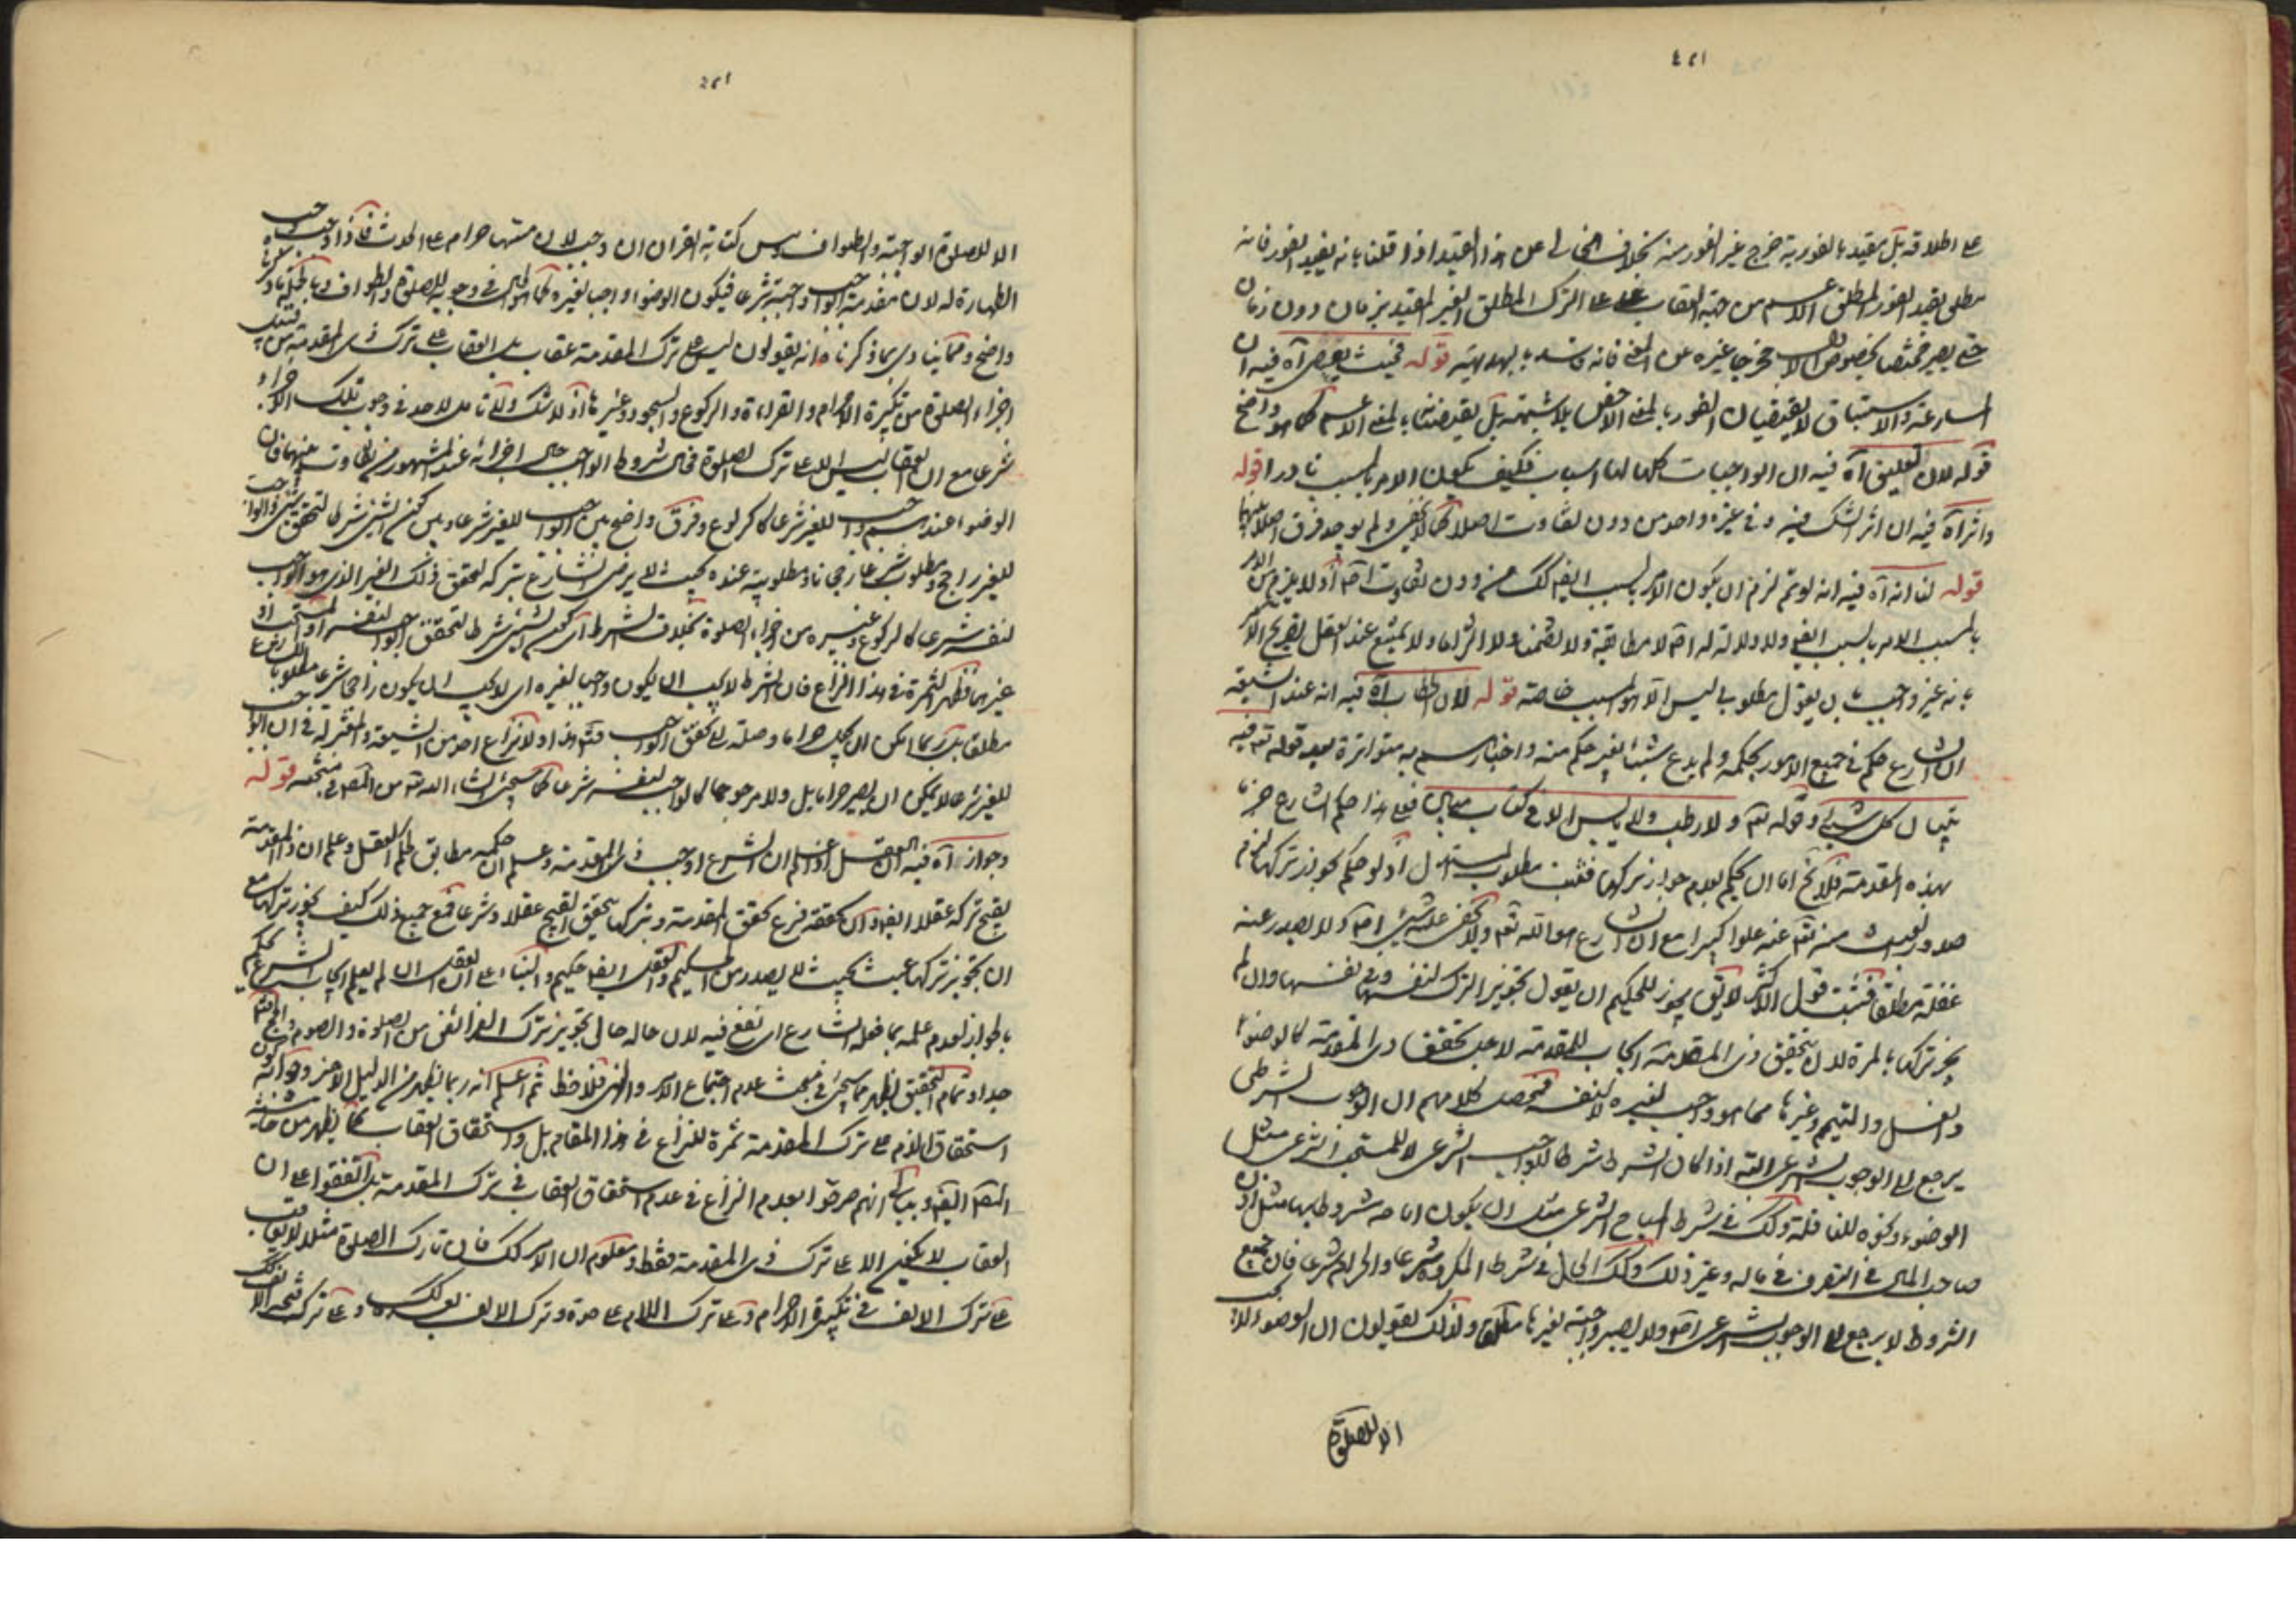 على اطلاقه بل يقيد بالفورية خرج غير الفور منه بخلاف الخالى عن هذا القيد اذا قلنا بانه يفيد الفور فانه
مطلق بقيد الفور المطلق الاعم من جهة العقاب على الترك المطلق الغير المقيد بزمان دون زمان
حتى يصير مختصا بخصوص مخرجا غيره عن المعنى فانه فاسد بالبديهة قوله فحيث يعصى آه فيه ان
المسارعة والاستباق لا يقتضيان الفور بالمعنى الاخص بلا شبهة بل يقتضيان بالمعنى الاعم كما هو واضح
قوله لان تعليق آه فيه ان الواجبات كلها لها اسباب فكيف يكون الامر بالسبب نادرا قوله
واثرآه فيه ان اثر الشك فيه وفى غيره واحد من دون تفاوت اصلا كما لا يخفى ولم يوجد فرق اصلا بينهما
قوله لنا انه آه فيه انه لو تم لزم ان يكون الامر بالسبب ايضا كك من دون تفاوت اصلا اذ لا يلزم من الامر
بالمسبب الامر بالسبب ايضا ولا دلالة له اصلا لا مطابقة ولا تضمنا ولا التزاما ولا يمتنع عند العقل تصريح الآمر
بانه غير واجب بان يقول مطلوبى ليس الا هو المسبب خاصة قوله لان الخطاب آه فيه انه عند الشيعة
ان الشارع حكم فى جميع الامور بحكمه ولم يدع شيئا بغير حكم منه واخبارهم به متواترة بعد قوله تعالى فيه
تبيان كل شيئ وقوله تعالى ولا رطب ولا يابس الا فى كتاب مبين فعلى هذا حكم الشارع جزما
بهذه المقدمة فلا يخ اما ان يحكم بعدم جواز تركها فثبت مطلوب المستدل او لو حكم بجواز تركها لزم
صدور العبث منه تعالى عنه علوا كبيرا مع ان الشارع هو الله تعالى ولا يخفى عليه شيئ اصلا ولا يصدر عنه
غفلة مطلقا فثبت قول الاكثر لا يق يجوز للحكيم ان يقول بتجويز الترك لنفسها وفى نفسها وان لم
يجز تركها بالمرة لان بتحقيق ذى المقدمة ايجاب للمقدمة لاجل تحقق ذى المقدمة كالوضوء
والغسل والتيمم وغيرها مما هو واجب لغيره لا لنفسه فمحصل كلامهم ان الوجوب الشرطى
يرجع الى الوجوب الشرعى البتة اذا كان الشرط شرطا للواجب الشرعى لا للمستحب الشرعى مثل
الوضوء ونحوه للنافلة وكك فى شرط المباح الشرعى مثل ان يكون اباحة مشروطا بها مثل اذن
صاحب المال فى التصرف فى ماله وغير ذلك وكك الحال فى شرط المكروه شرعا والحرام شرعا فان جميع
الشروط لا يرجع الى الوجوب الشرعى اصلا ولا يصير واجبة لغيرها مطلقا ولذلك يقولون ان الوضوء لا يجب
الا للصلوة
الا للصلوة الواجبة والطواف ومس كتابة القران ان وجب لان مسها حرام على المحدث فاذا وجب
الطهارة له لان مقدمة الواجب واجبة شرعا فيكون الوضوء واجبا لغيره كما هو الحال فى وجوبه للصلوة والطواف وبالجملة ما ذكرنا
واضح ومما ينادى بما ذكرناه انه يقولون ليس على ترك المقدمة عقاب بل العقاب على ترك ذى المقدمة من قبيل
اجزاء الصلوة من تكبيرة الاحرام والقراءة والركوع والسجود وغيرها اذ لا شك ولا تامل لاحد فى وجوب تلك الاجزاء
شرعا مع ان العقاب ليس الا على ترك الصلوة فحال شروط الواجب حال اجزائه عند المشهور من غير تفاوت بينهما فان
الوضوء عندهم واجب للغير شرعا كالركوع وفرق واضح بين الواجب للغير شرعا وبين كون الشيئ شرطا لتحقق شيئ والواجب
للغير راجح ومطلوب شرعا رجحانا ومطلوبية عنده بحيث لا يرضى الشارع بتركه لتحقق ذلك الغير الذى هو الواجب
لنفسه شرعا كالركوع وغيره من اجزاء الصلوة بخلاف الشرط اى كون الشيئ شرطا لتحقق الواجب لنفسه او المستحب او
غيرهما فظهر الثمرة فى هذا النزاع فان الشرط لا يجب ان يكون واجبا لغيره اى لا يجب ان يكون راجحا شرعا مطلوبا للشارع
مطلقا بل ربما امكن ان يكون حراما وصلة الى تحقق الواجب فتم هذا ولا نزاع لاحد من الشيعة والمعتزلة فى ان الواجب
للغير شرعا لا يمكن ان يصير حراما بل ولا مرجوحا كالواجب لنفسه شرعا كما سيجيئ انشاء الله تعالى من المصنف فى مبحثه قوله
وجوازه آه فيه ان العقل اذا علم ان الشرع اوجب ذى المقدمة وعلم ان حكمه مطابق لحكم العقل وعلم ان ذا المقدمة
يقبح تركه عقلا ايضا وان تحققه فرع تحقق المقدمة وبتركها يتحقق القبيح عقلا وشرعا فمع جميع ذلك كيف يجوز تركها مع
ان تجويز تركها عبث بحيث لا يصدر من الحكيم والعقل ايضا حكيم والبناء على ان العقل ان لم يعلم ايجاب الشرع يحكم
بالجواز لعدم علمه بما فعله الشارع اى نفع فيه لان حاله حال تجويز ترك الفرائض من الصلوة والصوم والحج
جدا وتمام التحقيق يظهر مما سيجيئ فى مبحث عدم اجتماع الامر والنهى فلاحظ ثم اعلم انه ربما يظهر من الدليل الاخير وجوابه
استحقاق الذم على ترك المقدمة ثمرة للنزاع فى هذا المقام بل واستحقاق العقاب كما يظهر من حاشية
المصنف ايضا وينافى انهم صرحوا بعدم النزاع فى عدم استحقاق العقاب فى ترك المقدمة بل اتفقوا على ان
العقاب لا يكون الا على ترك ذى المقدمة فقط ومعلوم ان الامر كك فان تارك الصلوة مثلا لا يعاقب
على ترك الالف فى تكبيرة الاحرام وعلى ترك اللام على حدة وترك الالف بعد ذلك وعلى ترك